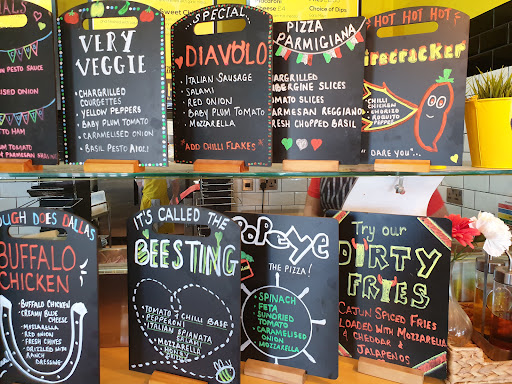 IALS
IN PESTO SAUCE
SED ONION
TO HAM
AN PARMESAN
VERY
VEGGIE
• CHARGRILLED
COURGETTES
• YELLOW PEPPERS
• BABY PLUM TOMATO
• CARAMELISED ONION
• BASIL PESTO AIOLI
SPECIAL
DIAVOLO
• ITALIAN SAUSAGE
• SALAMI
• RED ONION
• BABY PLUM TOMATO
• MOZZARELLA
* ADD CHILLI FLAKES *
PIZZA
PARMIGIANA
• CHARGRILLED
AUBERGINE SLICES
• TOMATO SLICES
• PARMESAN REGGIANO
• FRESH CHOPPED BASIL
Choice of Dips
HOT HOT HOT
FIRECRACKER
CHILLI CHICKEN
CHORIZO
ROQUITO
PEPPER
"DARE YOU"...
OUGH DOES DALLAS
BUFFALO
CHICKEN
• BUFFALO CHICKEN
• CREAMY BLUE
CHEESE
• MOZZARELLA
• RED ONION
• FRESH CHIVES
• DRIZZLED WITH
RANCH
DRESSING
IT'S CALLED THE
BEESTING
• TOMATO
• PEPPERONI
• ITALIAN SPIANATA
SALAMI
• MOZZARELLA
• HONEY
• CHILLI BASE
POPEYE
THE PIZZA!
• SPINACH
• FETA
• SUNDRIED
TOMATO
• CARAMELISED
ONION
• MOZZARELLA
TRY OUR
DIRTY
FRIES
CAJUN SPICED FRIES
LOADED WITH MOZZARELLA
& CHEDDAR &
JALAPENOS